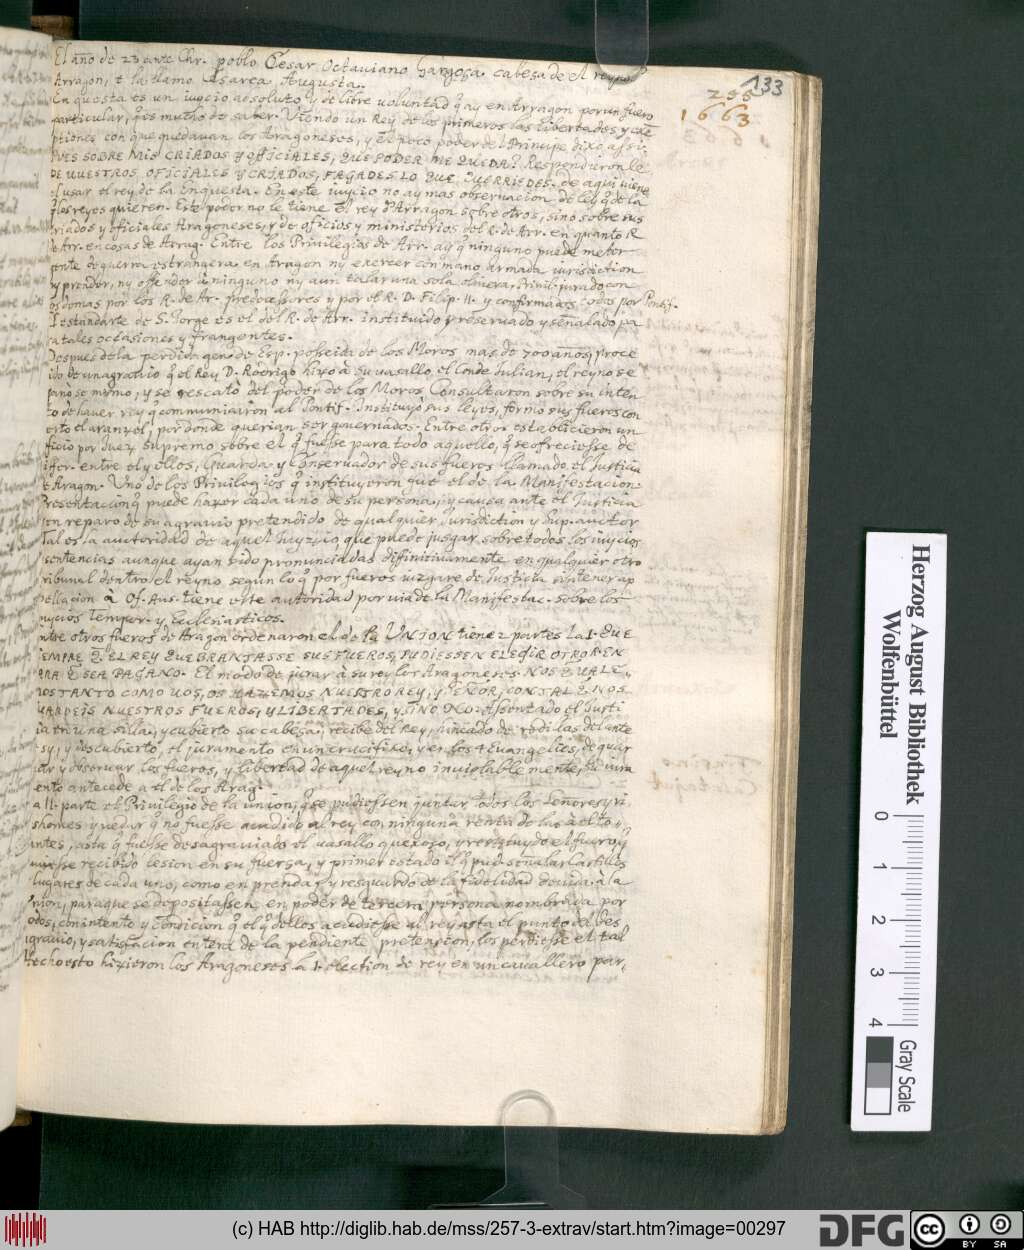 133
255
1663
El año de 23 ante Chr. poblo Cesar Octaviano Zargoça cabesa de el reyno
Arragon, e la llamo Cesarea Augusta.
En questa es un iuycio absoluto y de libre voluntad q ay en Arragon por un fuero
particular, q es mucho de saber. Viendo un Rey de los primeros las libertades y
con que quedavan los Aragoneses, y el poco poder del Principe dixo assi.
SOBRE MIS CRIADOS Y OFFICIALES, QUE PODER ME QUEDA? Respondieronle
DE VUESTROS OFICIALES Y CRIADOS, FAGADES LO QUE QUERRIEDES. de aqui viene
usar el rey de la Inquesta. En este iuycio no ay mas observacion de ley q de la
q los reyes quieren. Este poder no le tiene El rey d'Arragon sobre otros, sino sobre sus
criados y officiales Aragoneses, y de officios y ministerios del R. de Arr. en quanto R
de Arr. en cosas de Arrag. Entre los Privilegios de Arr. ay q ninguno puede meter
gente de guerra estrangera en Aragon ny exercer con mano armada iurisdiction
ny prender, ny offender à ninguno ny aun talar una sola olivera, Privil. jurado con
los demas por los R. de Ar. predecessores y por el R. D. Filip. II. y confirmados todos por Pontif.
El estandarte de S. Jorge es el del R. de Arr. instituido y reservado y señalado pa
ra tales occasiones y frangentes.
Despues de la perdida gen. de Esp. posseida de los Moros mas de 700 años, proce
dido de un agravio q el Rey D. Rodrigo hizo à su vasallo el Conde Julian, el reyno se
ganò se mismo, y se rescatò del poder de los Moros. Consultaron sobre su inten
to de haver rey q communicaron al Pontif. Instituyò sus leyes, formò sus fueros con
cierto el aranzel, por donde querian ser governados. Entre otros establicieron un
oficio por Juez Supremo sobre el q fuesse para todo aquello, q se ofreciesse de
difer. entre el y ellos, Guarda y Conservador de sus fueros llamado el Justicia
de Aragon. Uno de los Privilegios q instituyeron fue el de la Manifestacion
Presentacion q puede hazer cada uno de su persona, y causa ante el Justicia
en reparo de su agravio pretendido de qualquier Jurisdiction y Sup. auctor
Tal es la auctoridad de aquel Juyzio que puede jusgar sobre todos los iuycios
sentencias aunque ayan sido pronunciadas diffinitivamente en qualquier otro
tribunal dentro el reyno segun lo q por fueros iuzgare de Justicia sin tener ap
pellacion à Of. Aus. tiene este autoridad por via de la Manifestac. sobre los
iuycios Temper. y Ecclesiasticos.
Entre otros fueros de Aragon ordenaron el de la UNION tiene 2 partes la I. QUE
SIEMPRE Q EL REY QUEBRANTASSE SUS FUEROS, PUDIESSEN ELEGIR OTRO R. EN
ARA Q SEA PAGANO. El modo de jurar à su rey los Aragoneses. NOS Q VALE
MOS TANTO COMO VOS, OS HAZEMOS NUESTRO REY, Y SEÑOR, CON TAL Q NOS
GUARDEIS NUESTROS FUEROS, Y LIBERTADES, Y SINO NO. Assentado el Justi
cia en una silla, y cubierto su cabesa, recibe del Rey, hincado de rodillas delante
sy, y descubierto, el juramento en un crucifixo, y en los 4 Euangelios, de guar
dar y observar los fueros, y libertad de aquel reyno inviolablemente, su iura
mento antecede a el de los Arag.
La II. parte el Privilegio de la union, q se pudiessen juntar todos los Señores y ri
cos homes y vedar q no fuesse acudido al rey con ninguna renta de las
asta q fuesse desagraviado el vasallo quexoso, y restituydo el fuero, q
uviesse recibido lesion en su fuersa, y primer estado il q pud. señalar Castillos
lugares de cada uno, como en prenda, y resguardo de la fidelidad devida à la
Union, para que se depositassen en poder de tercera persona nombrada por
todos, con intento y condicion q el q dellos acudiesse al rey asta el punto del des
agravio, y satisfacion entera de la pendiente pretension, los perdiesse el tal
Hecho esto hizieron los Aragoneses la I. election de rey en un cavallero par,
Herzog August Bibliothek
Wolfenbüttel
0 1 2 3 4
Gray Scale
(c) HAB http://diglib.hab.de/mss/257-3-extrav/start.htm?image=00297
DFG
cc BY SA